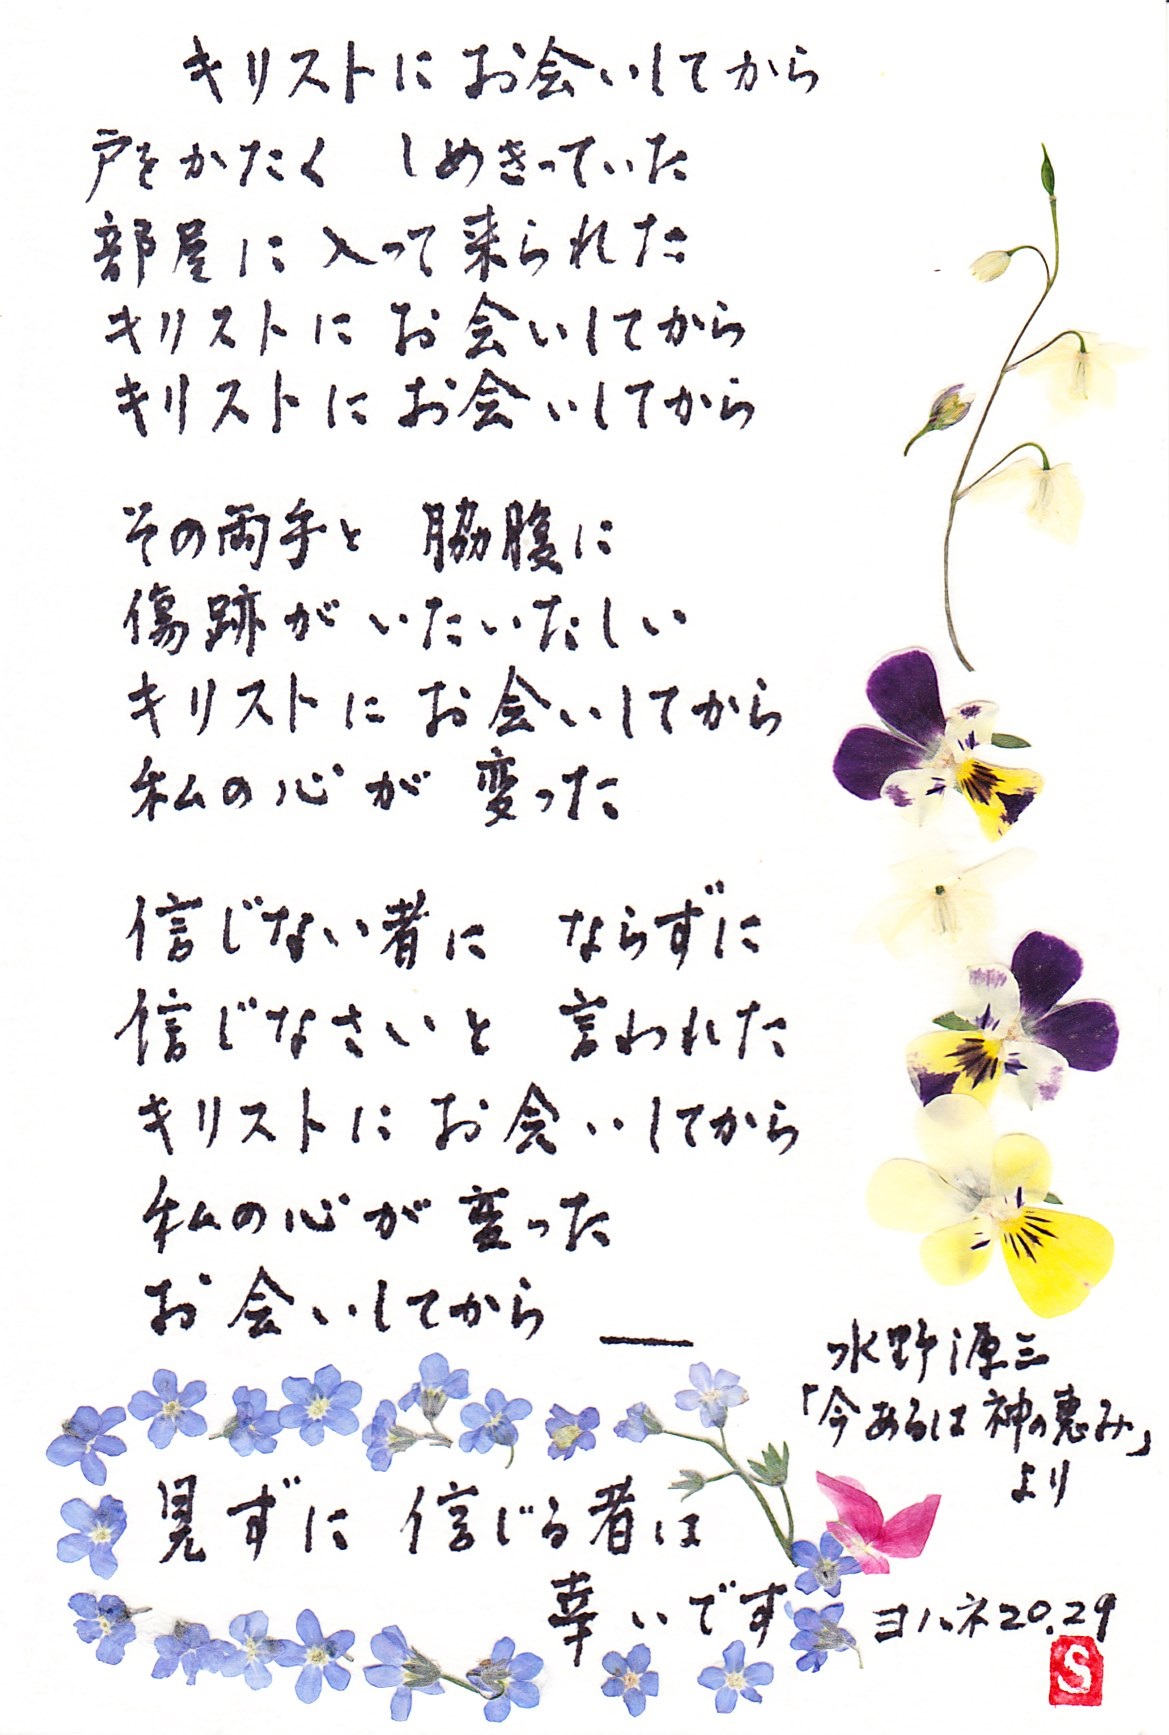 キリストにお会いしてから
戸をかたく しめきっていた
部屋に入って来られた
キリストにお会いしてから
キリストにお会いしてから
その両手と 脇腹に
傷跡がいたいたしい
キリストにお会いしてから
私の心が変った
信じない者に ならずに
信じなさいと 言われた
キリストにお会いしてから
私の心が変った
お会いしてから ―
水野源三
「今あるは神の恵み」
より
見ずに信じる者は
幸いです
ヨハネ20.29
S